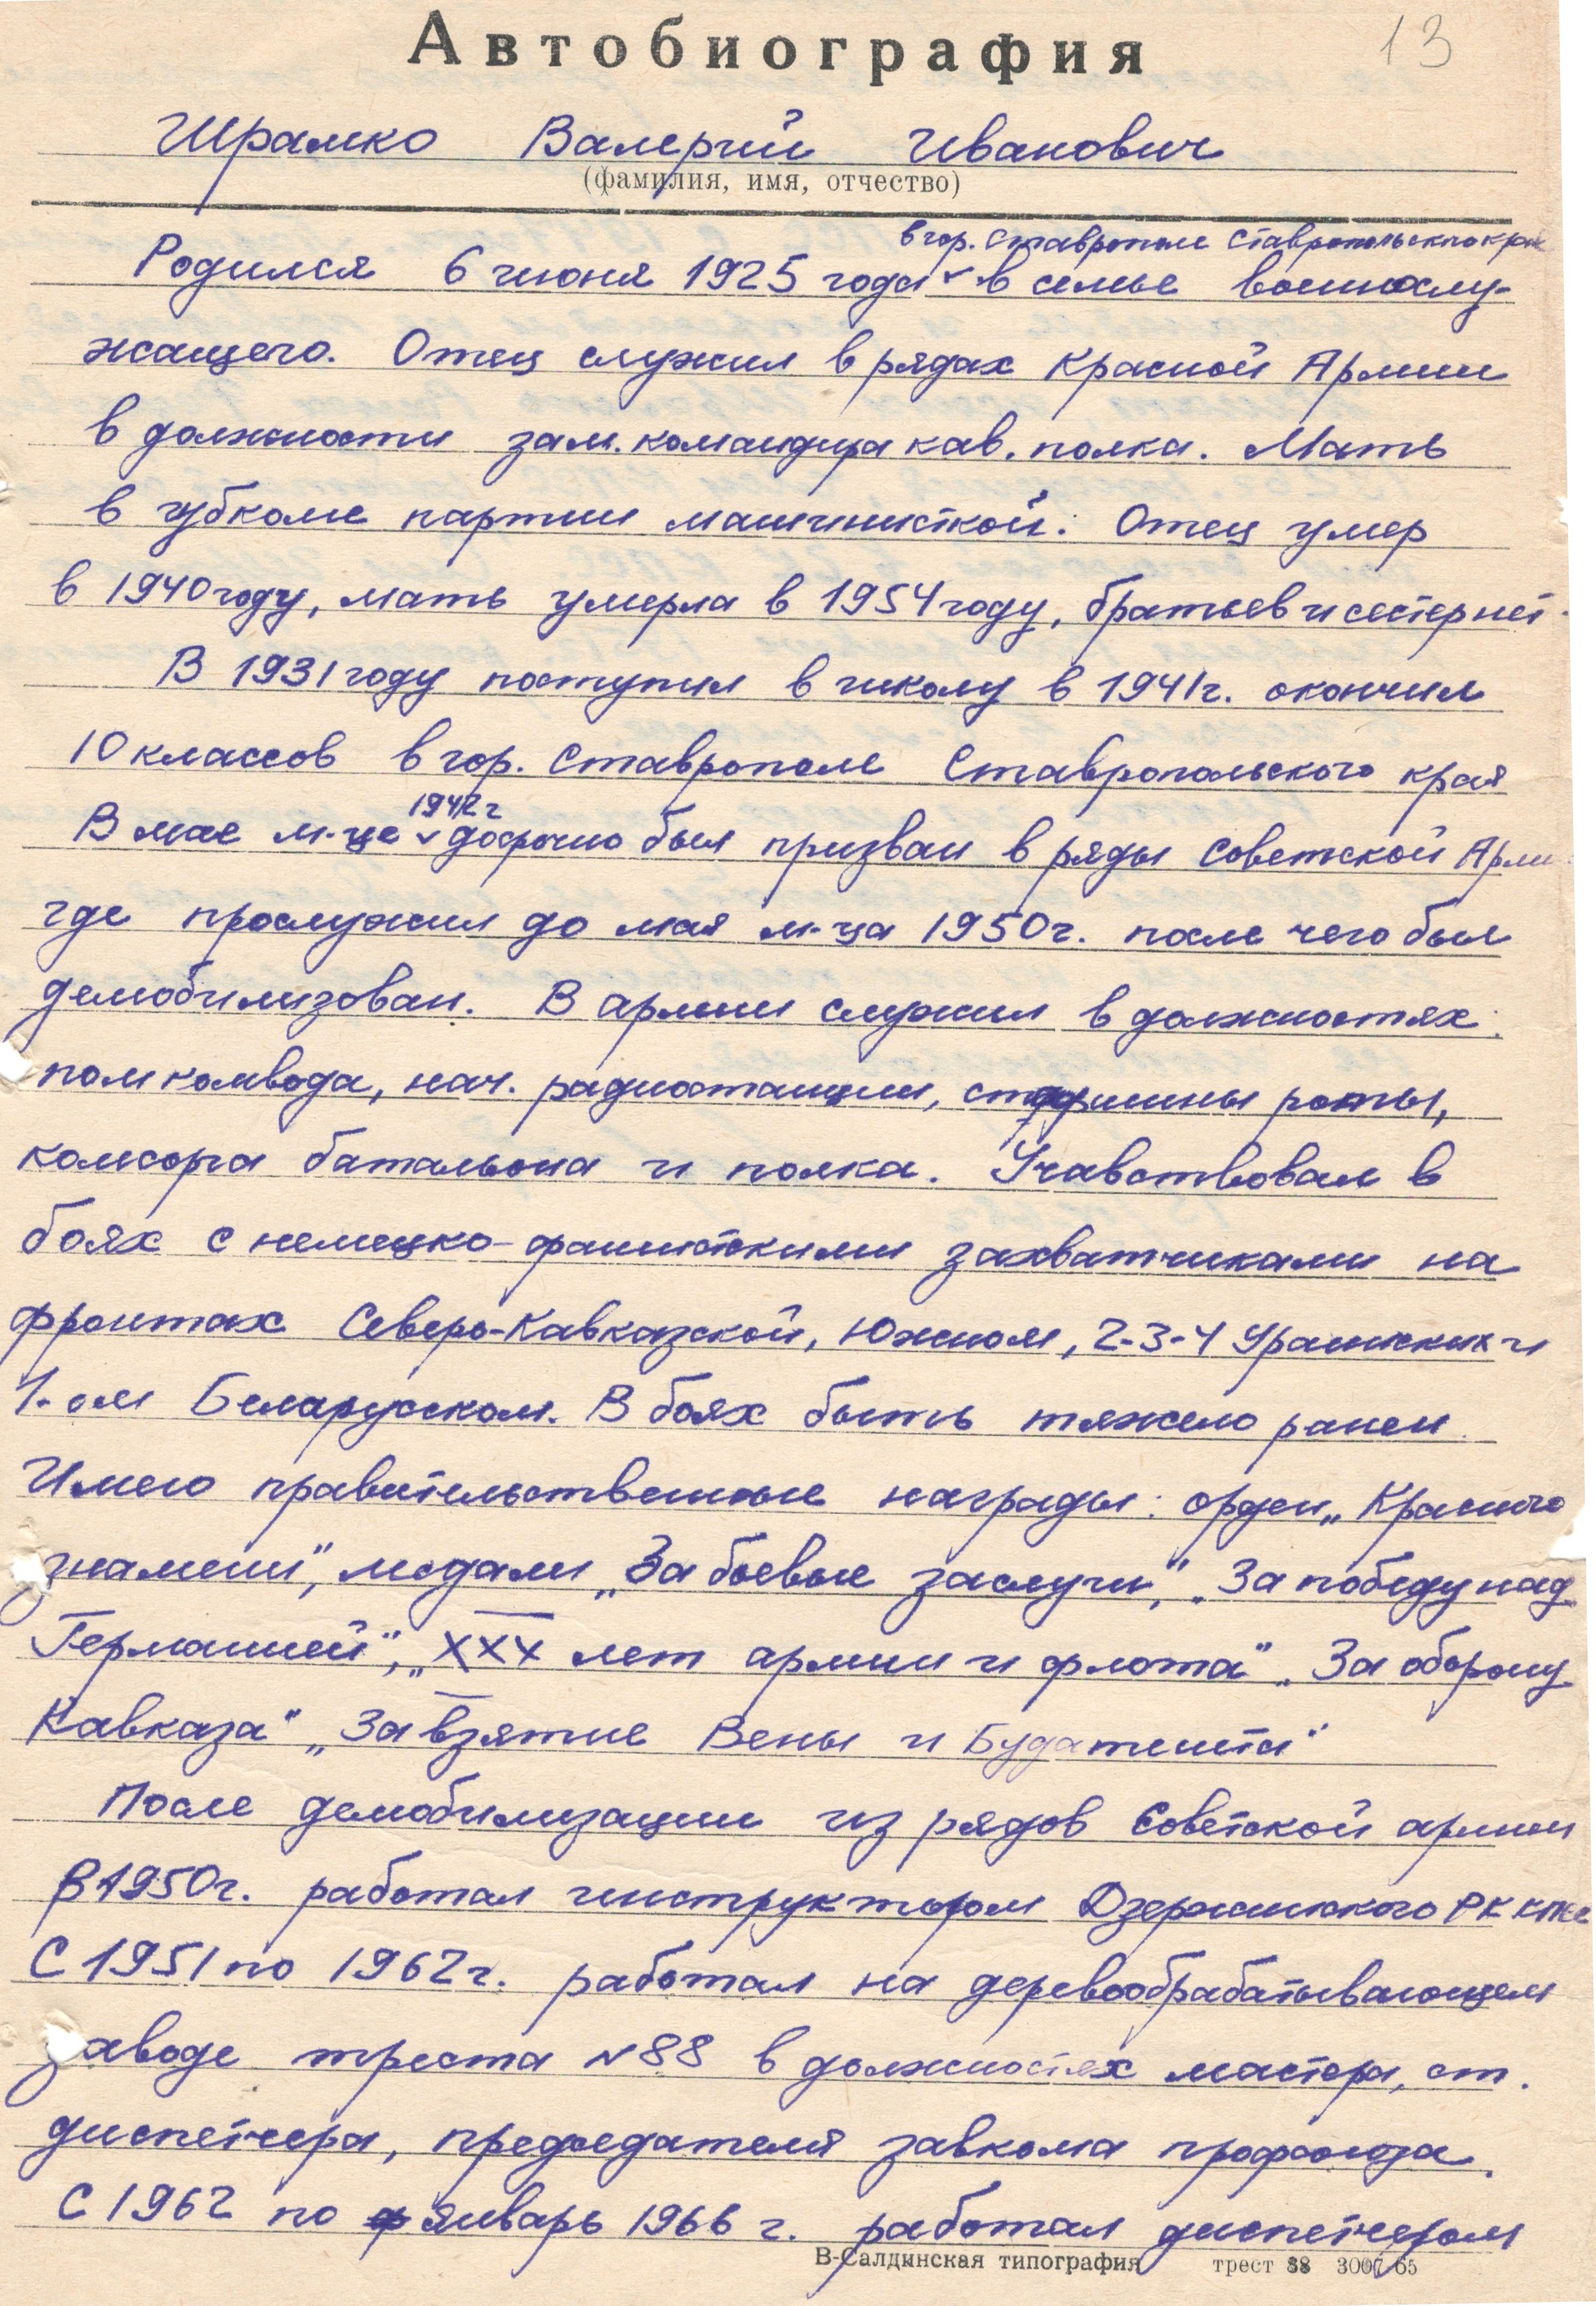 13
Автобиография
Шрамко Валерий Иванович
(фамилия, имя, отчество)
в гор. Ставрополе Ставропольского края
Родился 6 июня 1925 года в семье военнослу-
жащего. Отец служил в рядах Красной Армии
в должности зам. командира кав. полка. Мать
в губкоме партии машинисткой. Отец умер
в 1940 году, мать умерла в 1954 году, братьев и сестер нет.
В 1931 году поступил в школу в 1941 г. окончил
10 классов в гор. Ставрополе Ставропольского края
1942 г
В мае м-це досрочно был призван в ряды Советской Арми
где прослужил до мая м-ца 1950 г. после чего был
демобилизован. В армии служил в должностях:
пом комвода, нач. радиостанции, старшины роты,
комсорга батальона и полка. Учавствовал в
боях с немецко-фашистскими захватчиками на
фронтах Северо-Кавказской, Южном, 2-3-4 Украинских и
1-ом Беларусском. В боях быть тяжело ранен.
Имею правительственные награды: орден „Красного
знамени", медали „За боевые заслуги", „За победу над
Германией", „XXX лет армии и флота" „За оборону
Кавказа" „За взятие Вены и Будапешта"
После демобилизации из рядов Советской армии
В 1950 г. работал инструктором Дзержинского РК КПСС
С 1951 по 1962 г. работал на деревообрабатывающем
заводе треста №88 в должностях мастера, ст.
диспетчера, председателя завкома профсоюза.
С 1962 по январь 1966 г. работал диспетчером
В-Салдинская типография трест 88 3007 65